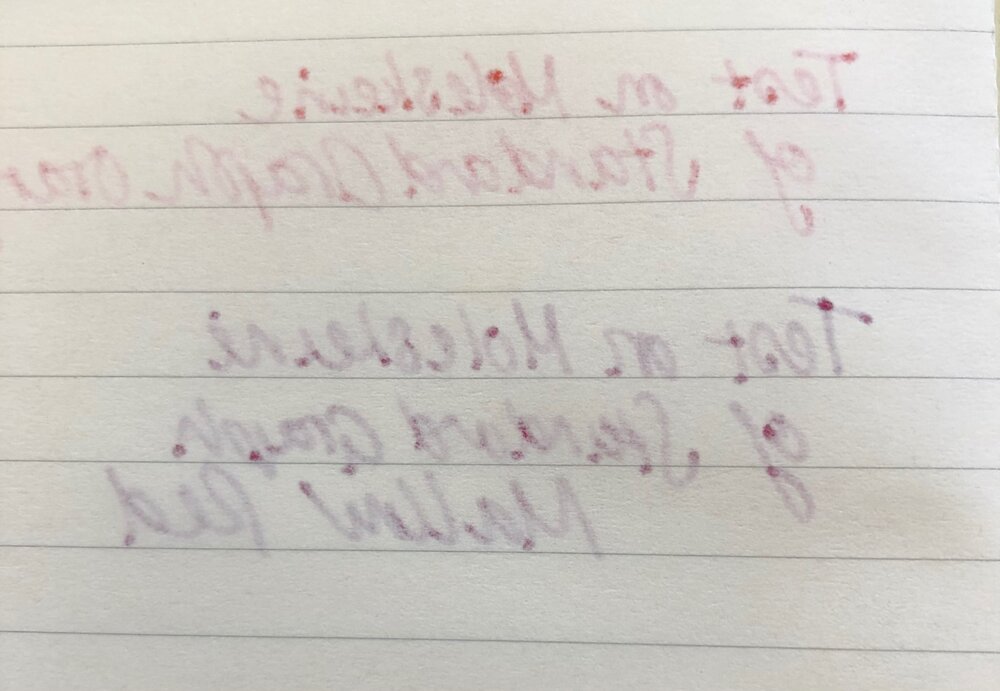 Test on Moleskine
of Standard Graph Oran
Test on Moleskine
of Standard Graph
Mallow Red